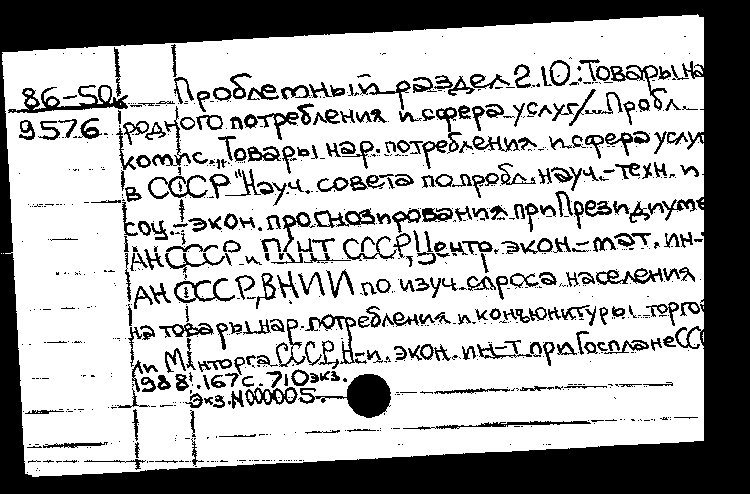 86-50к
9576
Проблемный раздел 2.10: Товары на
родного потребления и сфера услуг/... Пробл.
комис. „Товары нар. потребления и сфера услуг
в СССР" Науч. совета по пробл. науч.-техн. и
соц.-экон. прогнозирования при Президиуме
АН СССР и ГКНТ СССР, Центр. экон.-мат. ин-т
АН СССР, ВНИИ по изуч. спроса населения
на товары нар. потребления и конъюнктуры торгов
ли Минторга СССР, Н-и. экон. ин-т при Госплане ССС
1988. 167с. 710экз.
Экз. N000005.